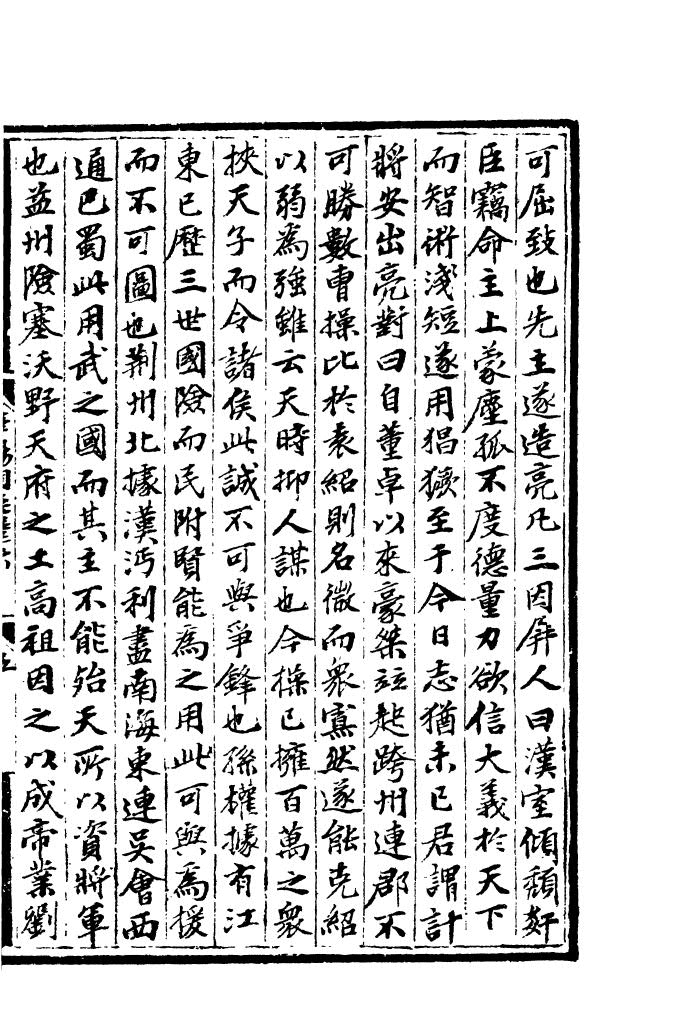 可屈致也先主遂造亮凡三因屏人曰漢室傾頹姧
臣竊命主上蒙塵孤不度德量力欲信大義於天下
而智術淺短遂用猖獗至于今日志猶未已君謂計
將安出亮對曰自董卓以來豪桀竝起跨州連郡不
可勝數曹操比於袁紹則名微而衆寡然遂能克紹
以弱為強雖云天時抑人謀也今操已擁百萬之衆
挾天子而令諸侯此誠不可與爭鋒也孫權據有江
東已歷三世國險而民附賢能為之用此可與為援
而不可圖也荆州北據漢沔利盡南海東連吳會西
通巴蜀此用武之國而其主不能殆天所以資將軍
也益州險塞沃野天府之土高祖因之以成帝業劉